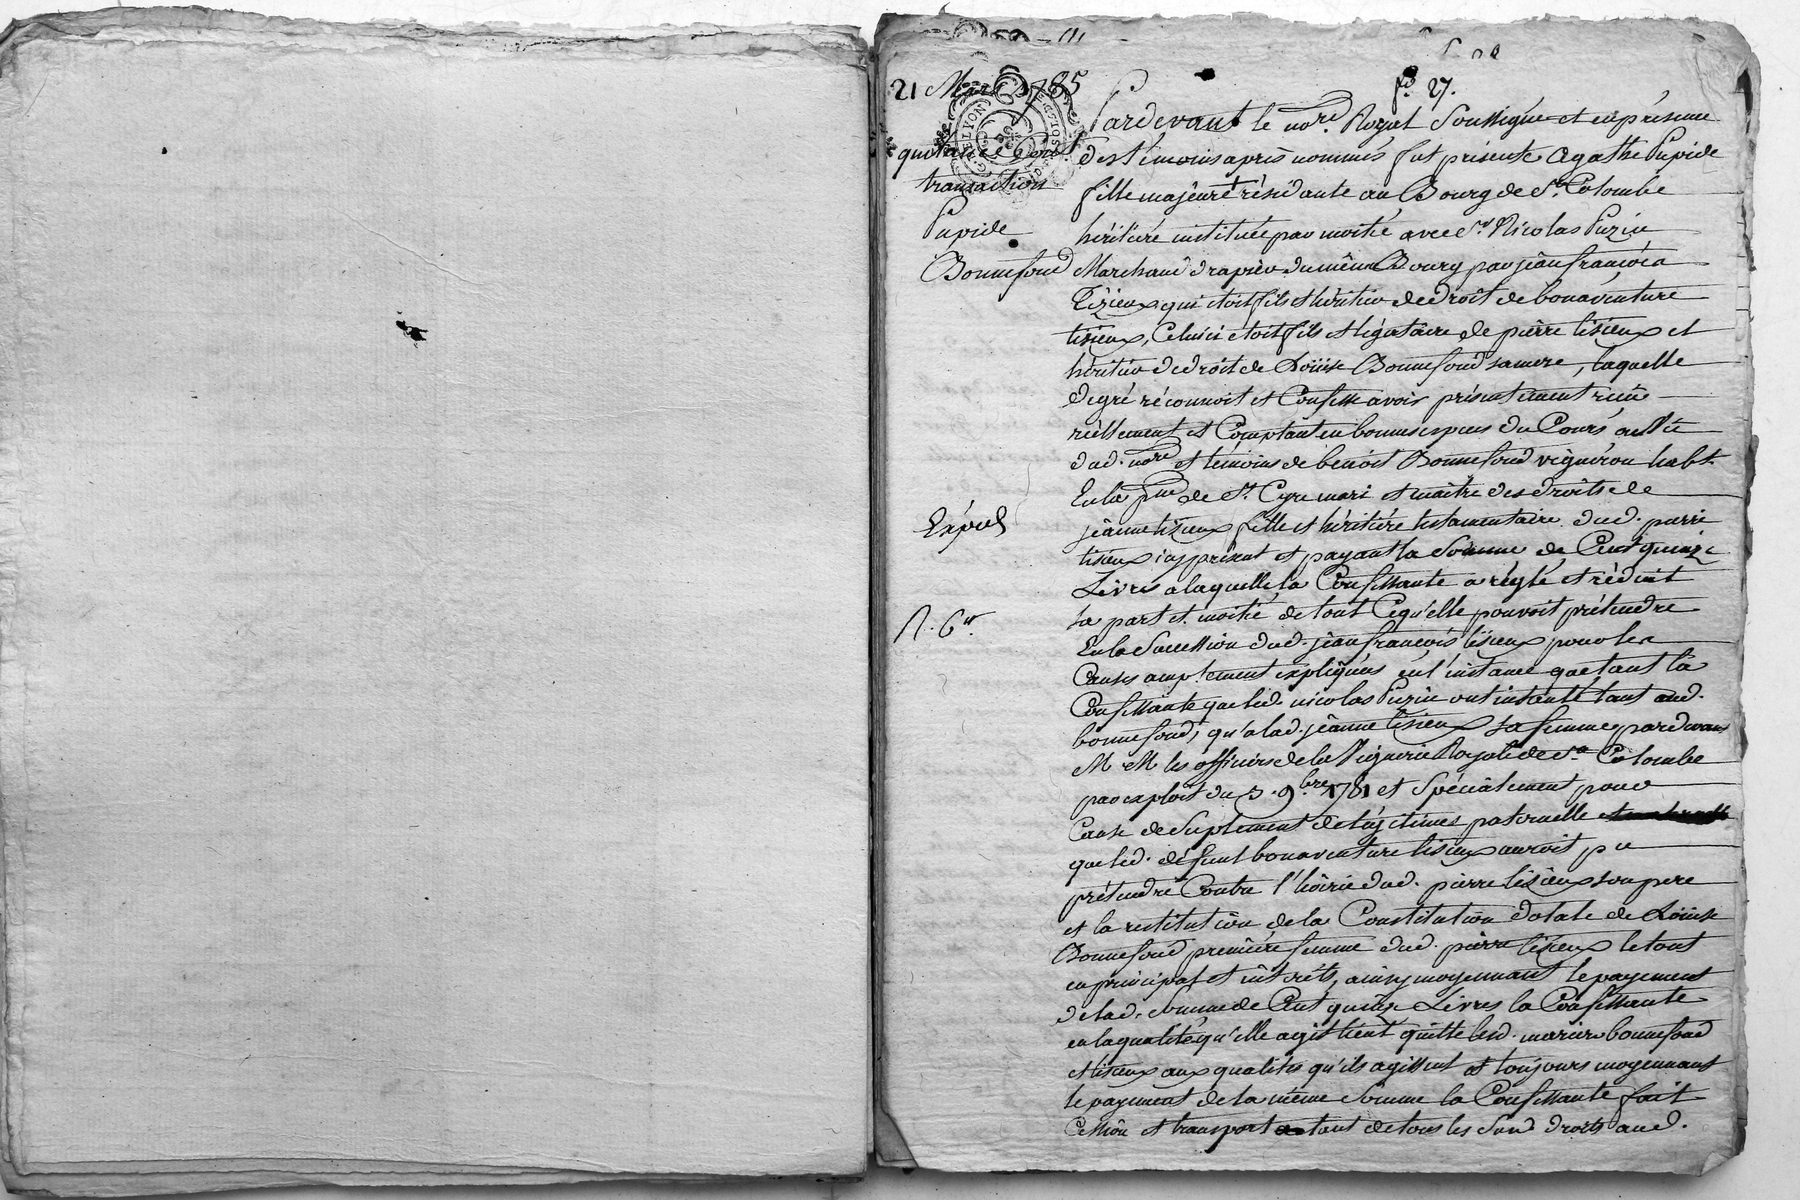 21 Mars 1785
fo. 27.
quitance
transaction
Pupide
Bonnefond
Expéd
Pardevant le nore. Royal Soussigné et en présence
des témoins après nommés fut présente Agathe Pupide
fille majeure résidante au Bourg de Ste Colombe
héritière instituée par moitié avec Sr. Nicolas Puzin
Marchand drapier du même Bourg par jean françois
Tizieux qui etoit fils et héritier de droit de bonaventure
tisieux, Celuici etoit fils et légataire de pierre tisieux et
héritier de droit de Loüise Bonnefond sa mere, laquelle
de gré réconnoit et Confesse avoir présentement reçu
réellement et Comptant en bonnes especes du Cours au Vû
dud. nore et témoins de benoit Bonnefond vigneron habt.
En la psse de St. Cyr mari et maître des droits de
jeanne tisieux fille et héritière testamentaire dud. pierre
tisieux icy présent et payant la Somme de Cent quinze
Livres a laquelle la Confessante a réglé et réduit
sa part et moitié de tout Cequ'elle pouvoit prétendre
En la Succession dud. jean françois tisieux pour les
Causes amplement expliquées en l'instance que tant la
Confessante que led. nicolas Puzin ont intenté tant aud.
bonnefond, qu'a lad. jeanne tisieux sa femme pardevant
M M les officiers de la Viguerie Royale de Ste Colombe
par exploit du 3. 9.bre 1781 et Spécialement pour
Cause de Suplément de légitimes paternelle
que led. défunt bonaventure tisieux auroit pu
prétendre Contre l'hoirie dud. pierre tisieux son pere
et la restitution de la Constitution dotale de Loüise
Bonnefond première femme dud. pierre tisieux le tout
en principal et intérêts, ainsy moyennant le payement
de lad. Somme de Cent quinze Livres la Confessante
en la qualité qu'elle agit tient quitte lesd. mariés bonnefond
et tisieux aux qualités qu'ils agissent et toujours moyennant
le payement de la même Somme la Confessante fait
Cession et transport de tous les Susd droits aud.